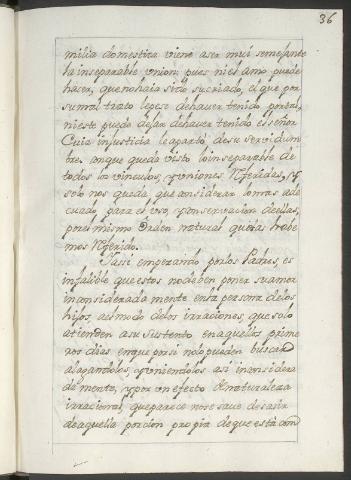 36
milia domestica viene aser mui semejante
la inseparable union; pues ni el amo puede
hacer, que no haia sido su criado, el que por
su mal trato le pese de haver tenido por tal,
ni este puede dejar de haver tenido el señor
Cuia injusticia le apartò de su servidum
bre. Con que queda visto lo inseparable de
todos los vinculos, y uniones referidas, y
solo nos queda que considerar lo mas ade
cuado para el uso, y conservacion de ellas,
por el mismo orden natural que las habe
mos referido.
Y assi empezando por los Padres, es
infalible que estos no deben poner su amor
inconsideradamente en la persona de los
hijos, a el modo de los irraciones, que solo
atienden a su sustento en aquellos prime
ros dias en que por si no lo pueden buscar
alagandolos, y uniendolos asi inconsidera
damente, y por un efecto de naturaleza
irracional, que parece no se save desasir
de aquella porcion propia de que està com